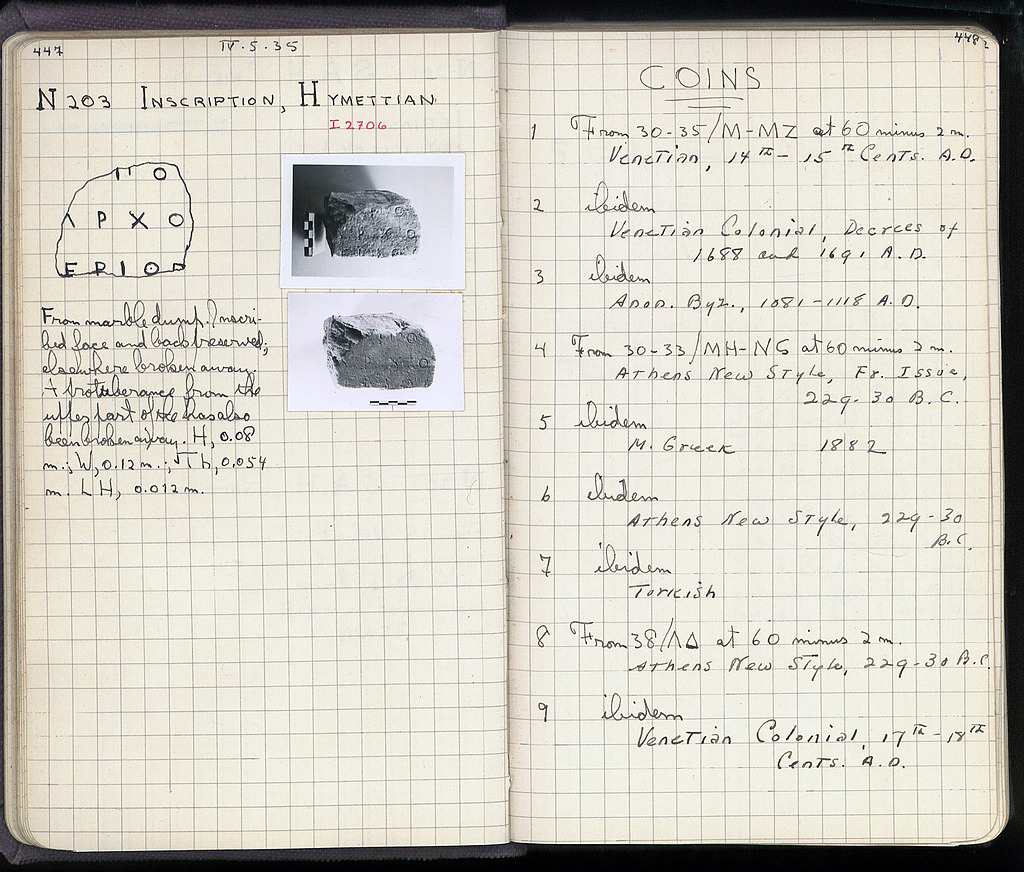 447
IV.5.35
N 203 INSCRIPTION, HYMETTIAN
I 2706
Π Ο
Λ Ρ Χ Ο
Ε Ρ Ι Ο
From marble dump. Inscri-
bed face and back preserved;
elsewhere broken away.
A protuberance from the
upper part of the has also
been broken away. H, 0.08
m.; W, 0.12 m.; Th, 0.054
m. LH, 0.012 m.
448
COINS
1 From 30-35/M-MZ at 60 minus 2 m.
Venetian, 14th - 15th Cents. A.D.
2 ibidem
Venetian Colonial, Decrees of
1688 and 1691 A.D.
3 ibidem
Anon. Byz., 1081-1118 A.D.
4 From 30-33/MH-NS at 60 minus 2 m.
Athens New Style, Fr. Issue,
229-30 B.C.
5 ibidem
M. Greek 1882
6 ibidem
Athens New Style, 229-30
B.C.
7 ibidem
Turkish
8 From 38/ΛΔ at 60 minus 2 m.
Athens New Style, 229-30 B.C.
9 ibidem
Venetian Colonial, 17th - 18th
Cents. A.D.